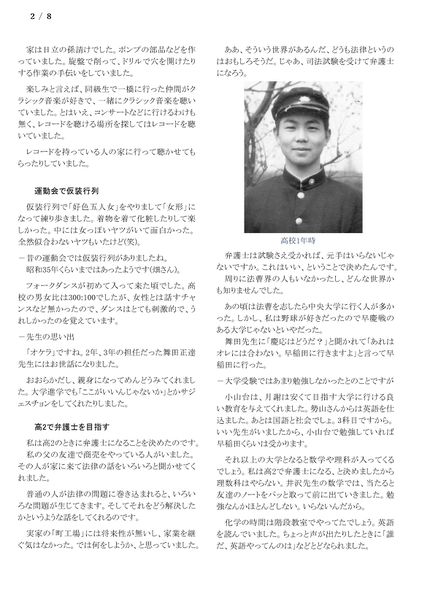 2 / 8
家は日立の孫請けでした。ポンプの部品などを作
っていました。旋盤で削って、ドリルで穴を開けたり
する作業の手伝いをしていました。
楽しみと言えば、同級生で一橋に行った仲間がク
ラシック音楽が好きで、一緒にクラシック音楽を聴い
ていました。とはいえ、コンサートなどに行けるわけも
無く、レコードを聴ける場所を探してはレコードを聴
いていました。
レコードを持っている人の家に行って聴かせても
らったりしていました。
運動会で仮装行列
仮装行列で「好色五人女」をやりまして「女形」に
なって練り歩きました。着物を着て化粧したりして楽
しかった。中には女っぽいヤツがいて面白かった。
全然似合わないヤツもいたけど(笑)。
－昔の運動会では仮装行列がありましたね。
昭和35年くらいまではあったようです(畑さん)。
フォークダンスが初めて入って来た頃でした。高
校の男女比は300:100でしたが、女性とは話すチャ
ンスなど無かったので、ダンスはとても刺激的で、う
れしかったのを覚えています。
－先生の思い出
「オケラ」ですね。2年、3年の担任だった舞田正達
先生にはお世話になりました。
おおらかだし、親身になってめんどうみてくれまし
た。大学進学でも「ここがいいんじゃないか」とかサジ
ェスチョンをしてくれたりしました。
高2で弁護士を目指す
私は高2のときに弁護士になることを決めたのです。
私の父の友達で商売をやっている人がいました。
その人が家に来て法律の話をいろいろと聞かせてく
れました。
普通の人が法律の問題に巻き込まれると、いろい
ろな問題が生じてきます。そしてそれをどう解決した
かというような話をしてくれるのです。
実家の「町工場」には将来性が無いし、家業を継
ぐ気はなかった。では何をしようか、と思っていました。
ああ、そういう世界があるんだ、どうも法律というの
はおもしろそうだ。じゃあ、司法試験を受けて弁護士
になろう。
高校1年時
弁護士は試験さえ受かれば、元手はいらないじゃ
ないですか。これはいい、ということで決めたんです。
周りに法曹界の人もいなかったし、どんな世界か
も知りませんでした。
あの頃は法曹を志したら中央大学に行く人が多か
った。しかし、私は野球が好きだったので早慶戦の
ある大学じゃないといやだった。
舞田先生に「慶応はどうだ？」と聞かれて「あれは
オレには合わない。早稲田に行きますよ」と言って早
稲田に行った。
－大学受験ではあまり勉強しなかったとのことですが
小山台は、月謝は安くて目指す大学に行ける良
い教育を与えてくれました。勢山さんからは英語を仕
込まれた。あとは国語と社会でしょ。3科目ですから。
いい先生がいましたから、小山台で勉強していれば
早稲田くらいは受かります。
それ以上の大学となると数学や理科が入ってくる
でしょう。私は高2で弁護士になる、と決めましたから
理数科はやらない。井沢先生の数学では、当たると
友達のノートをパッと取って前に出ていきました。勉
強なんかほとんどしない。いらないんだから。
化学の時間は階段教室でやってたでしょう。英語
を読んでいました。ちょっと声が出たりしたときに「誰
だ、英語やってんのは」などとどなられました。